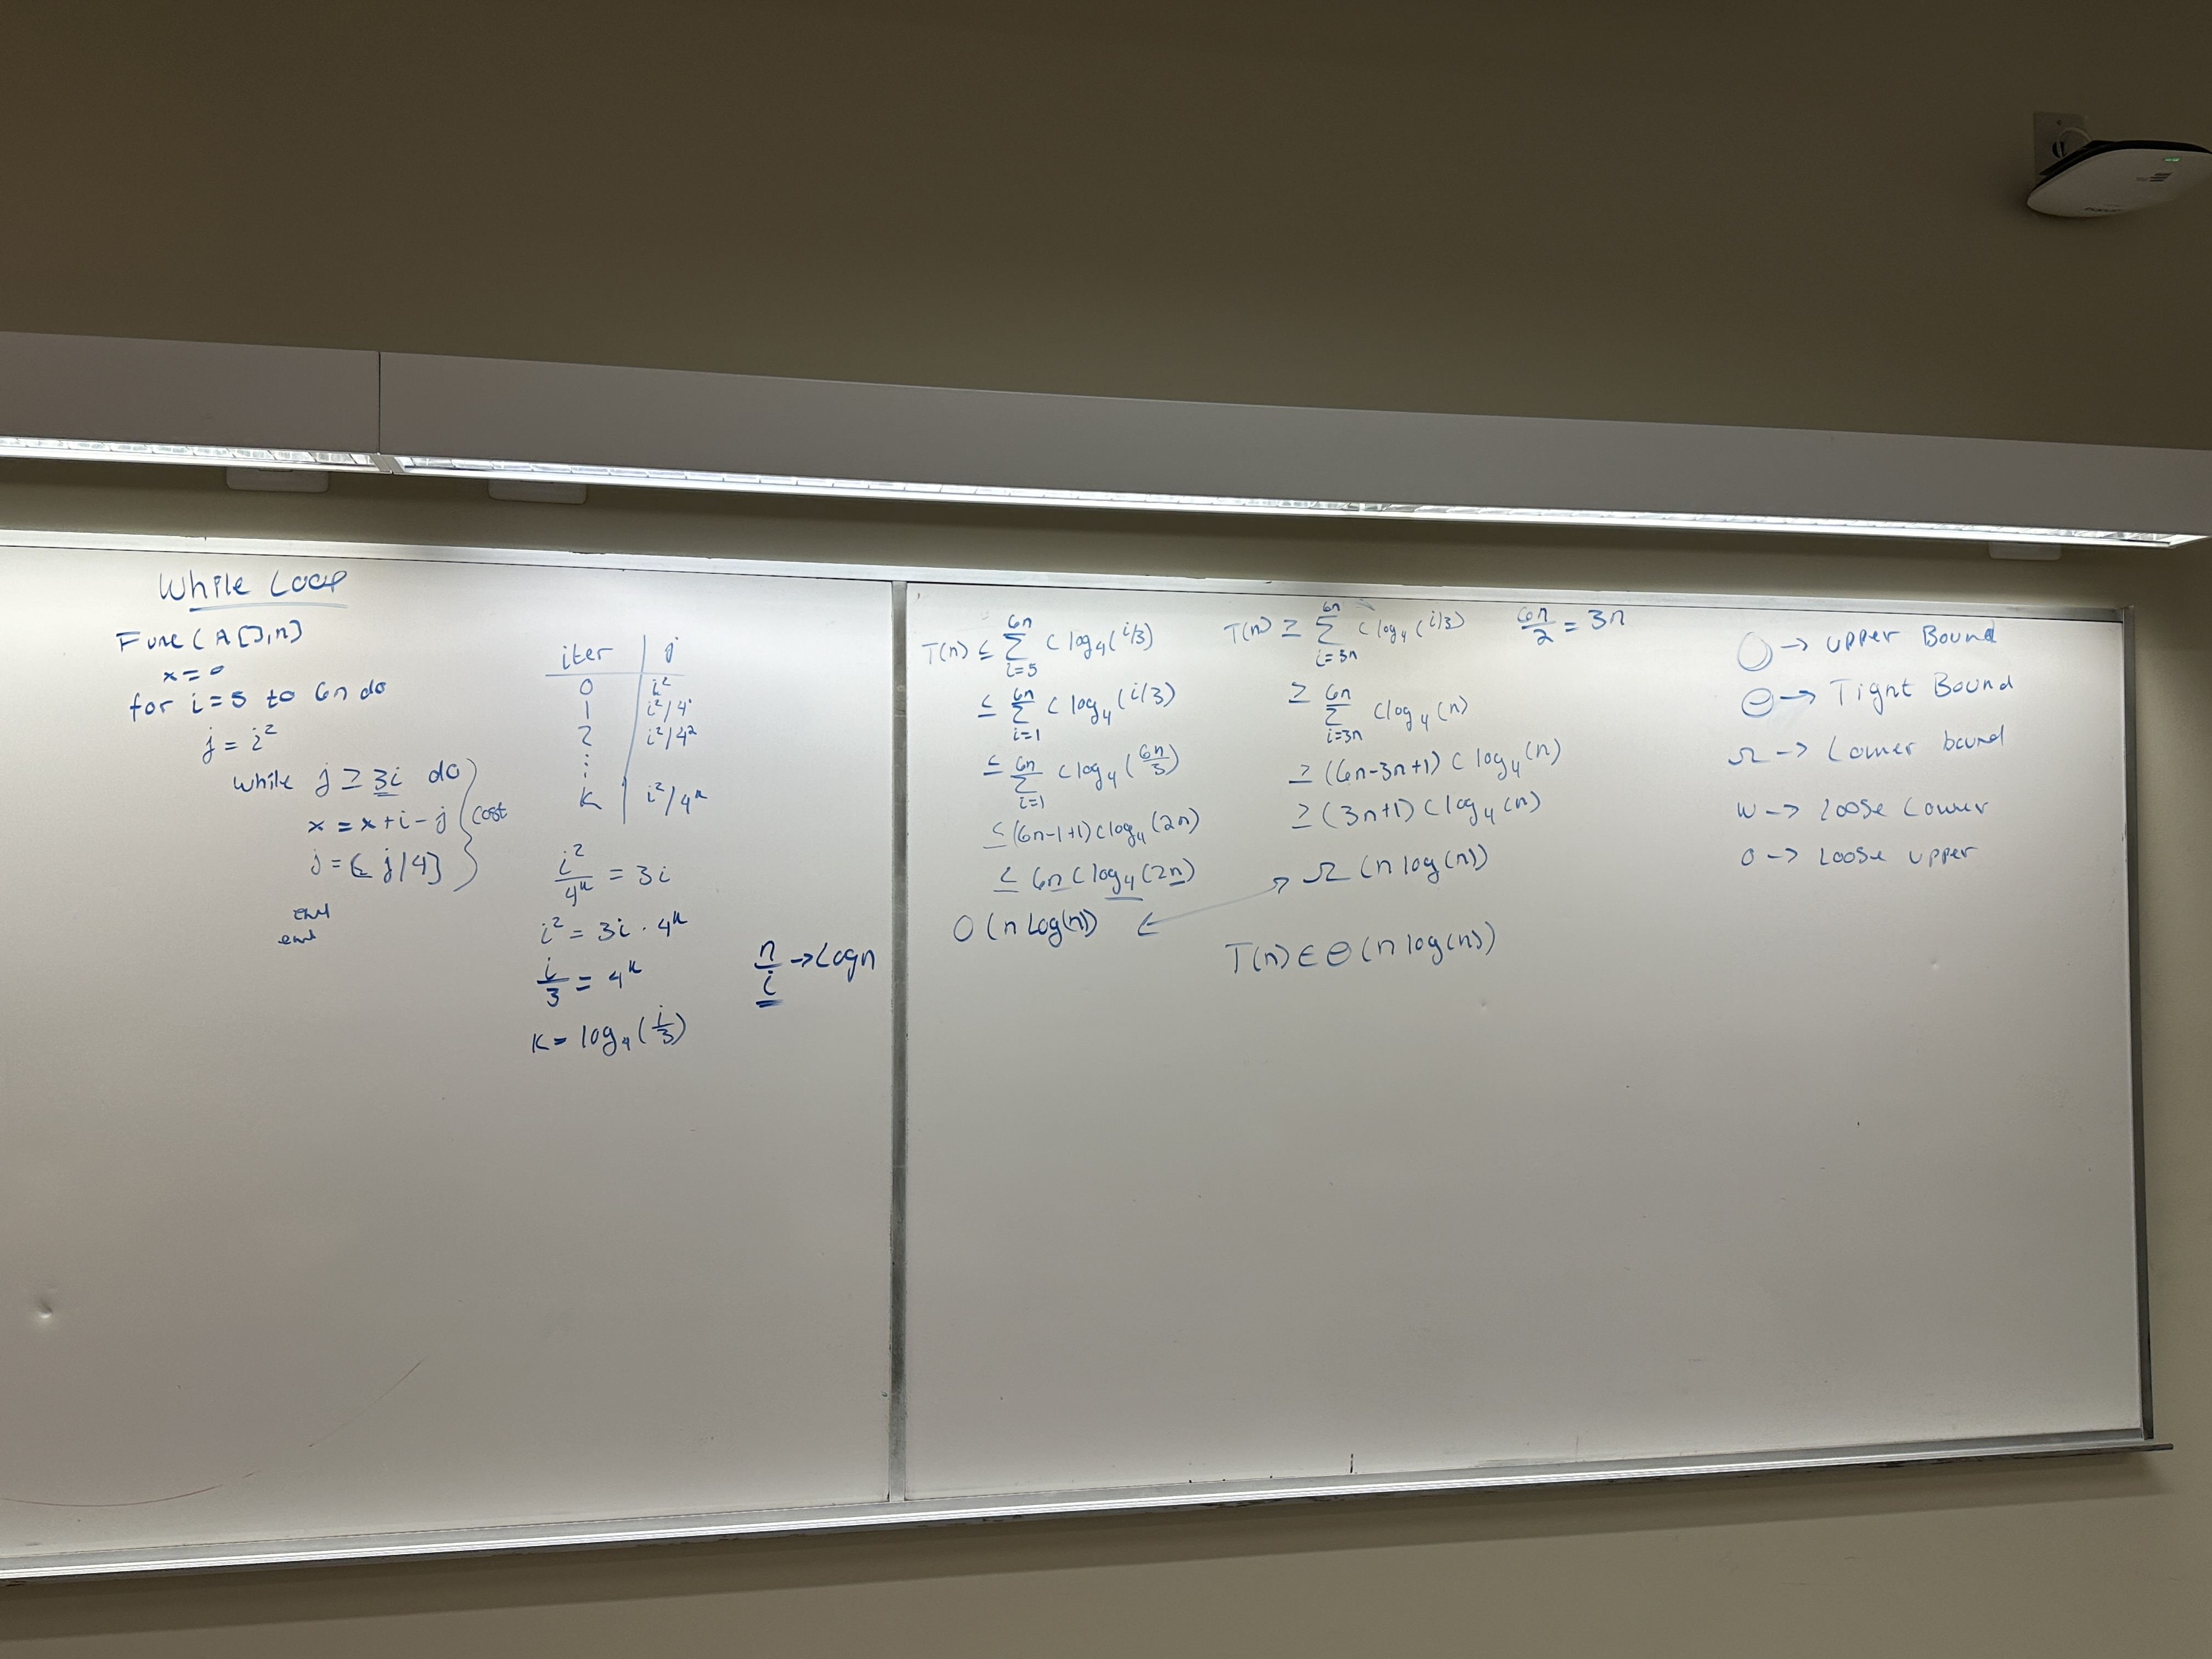 While Loop
Func(A[],n)
x=0
for i=5 to 6n do
j = i²
while j ≥ 3i do
x = x+i-j
j = ⌊j/4⌋
cost
end
end
iter | j
0 | i²
1 | i²/4¹
2 | i²/4²
⋮
k | i²/4^k
i²/4^k = 3i
i² = 3i · 4^k
i/3 = 4^k
k = log₄(i/3)
n/i → Logn
T(n) ≤ Σ_{i=5}^{6n} c log₄(i/3)
≤ Σ_{i=1}^{6n} c log₄(i/3)
≤ Σ_{i=1}^{6n} c log₄(6n/3)
≤ (6n-1+1) c log₄(2n)
≤ 6n c log₄(2n)
O(n log(n))
T(n) ≥ Σ_{i=3n}^{6n} c log₄(i/3)
6n/2 = 3n
≥ Σ_{i=3n}^{6n} c log₄(n)
≥ (6n-3n+1) c log₄(n)
≥ (3n+1) c log₄(n)
Ω(n log(n))
T(n) ∈ Θ(n log(n))
O → upper Bound
Θ → Tight Bound
Ω → Lower bound
w → Loose Lower
o → Loose upper